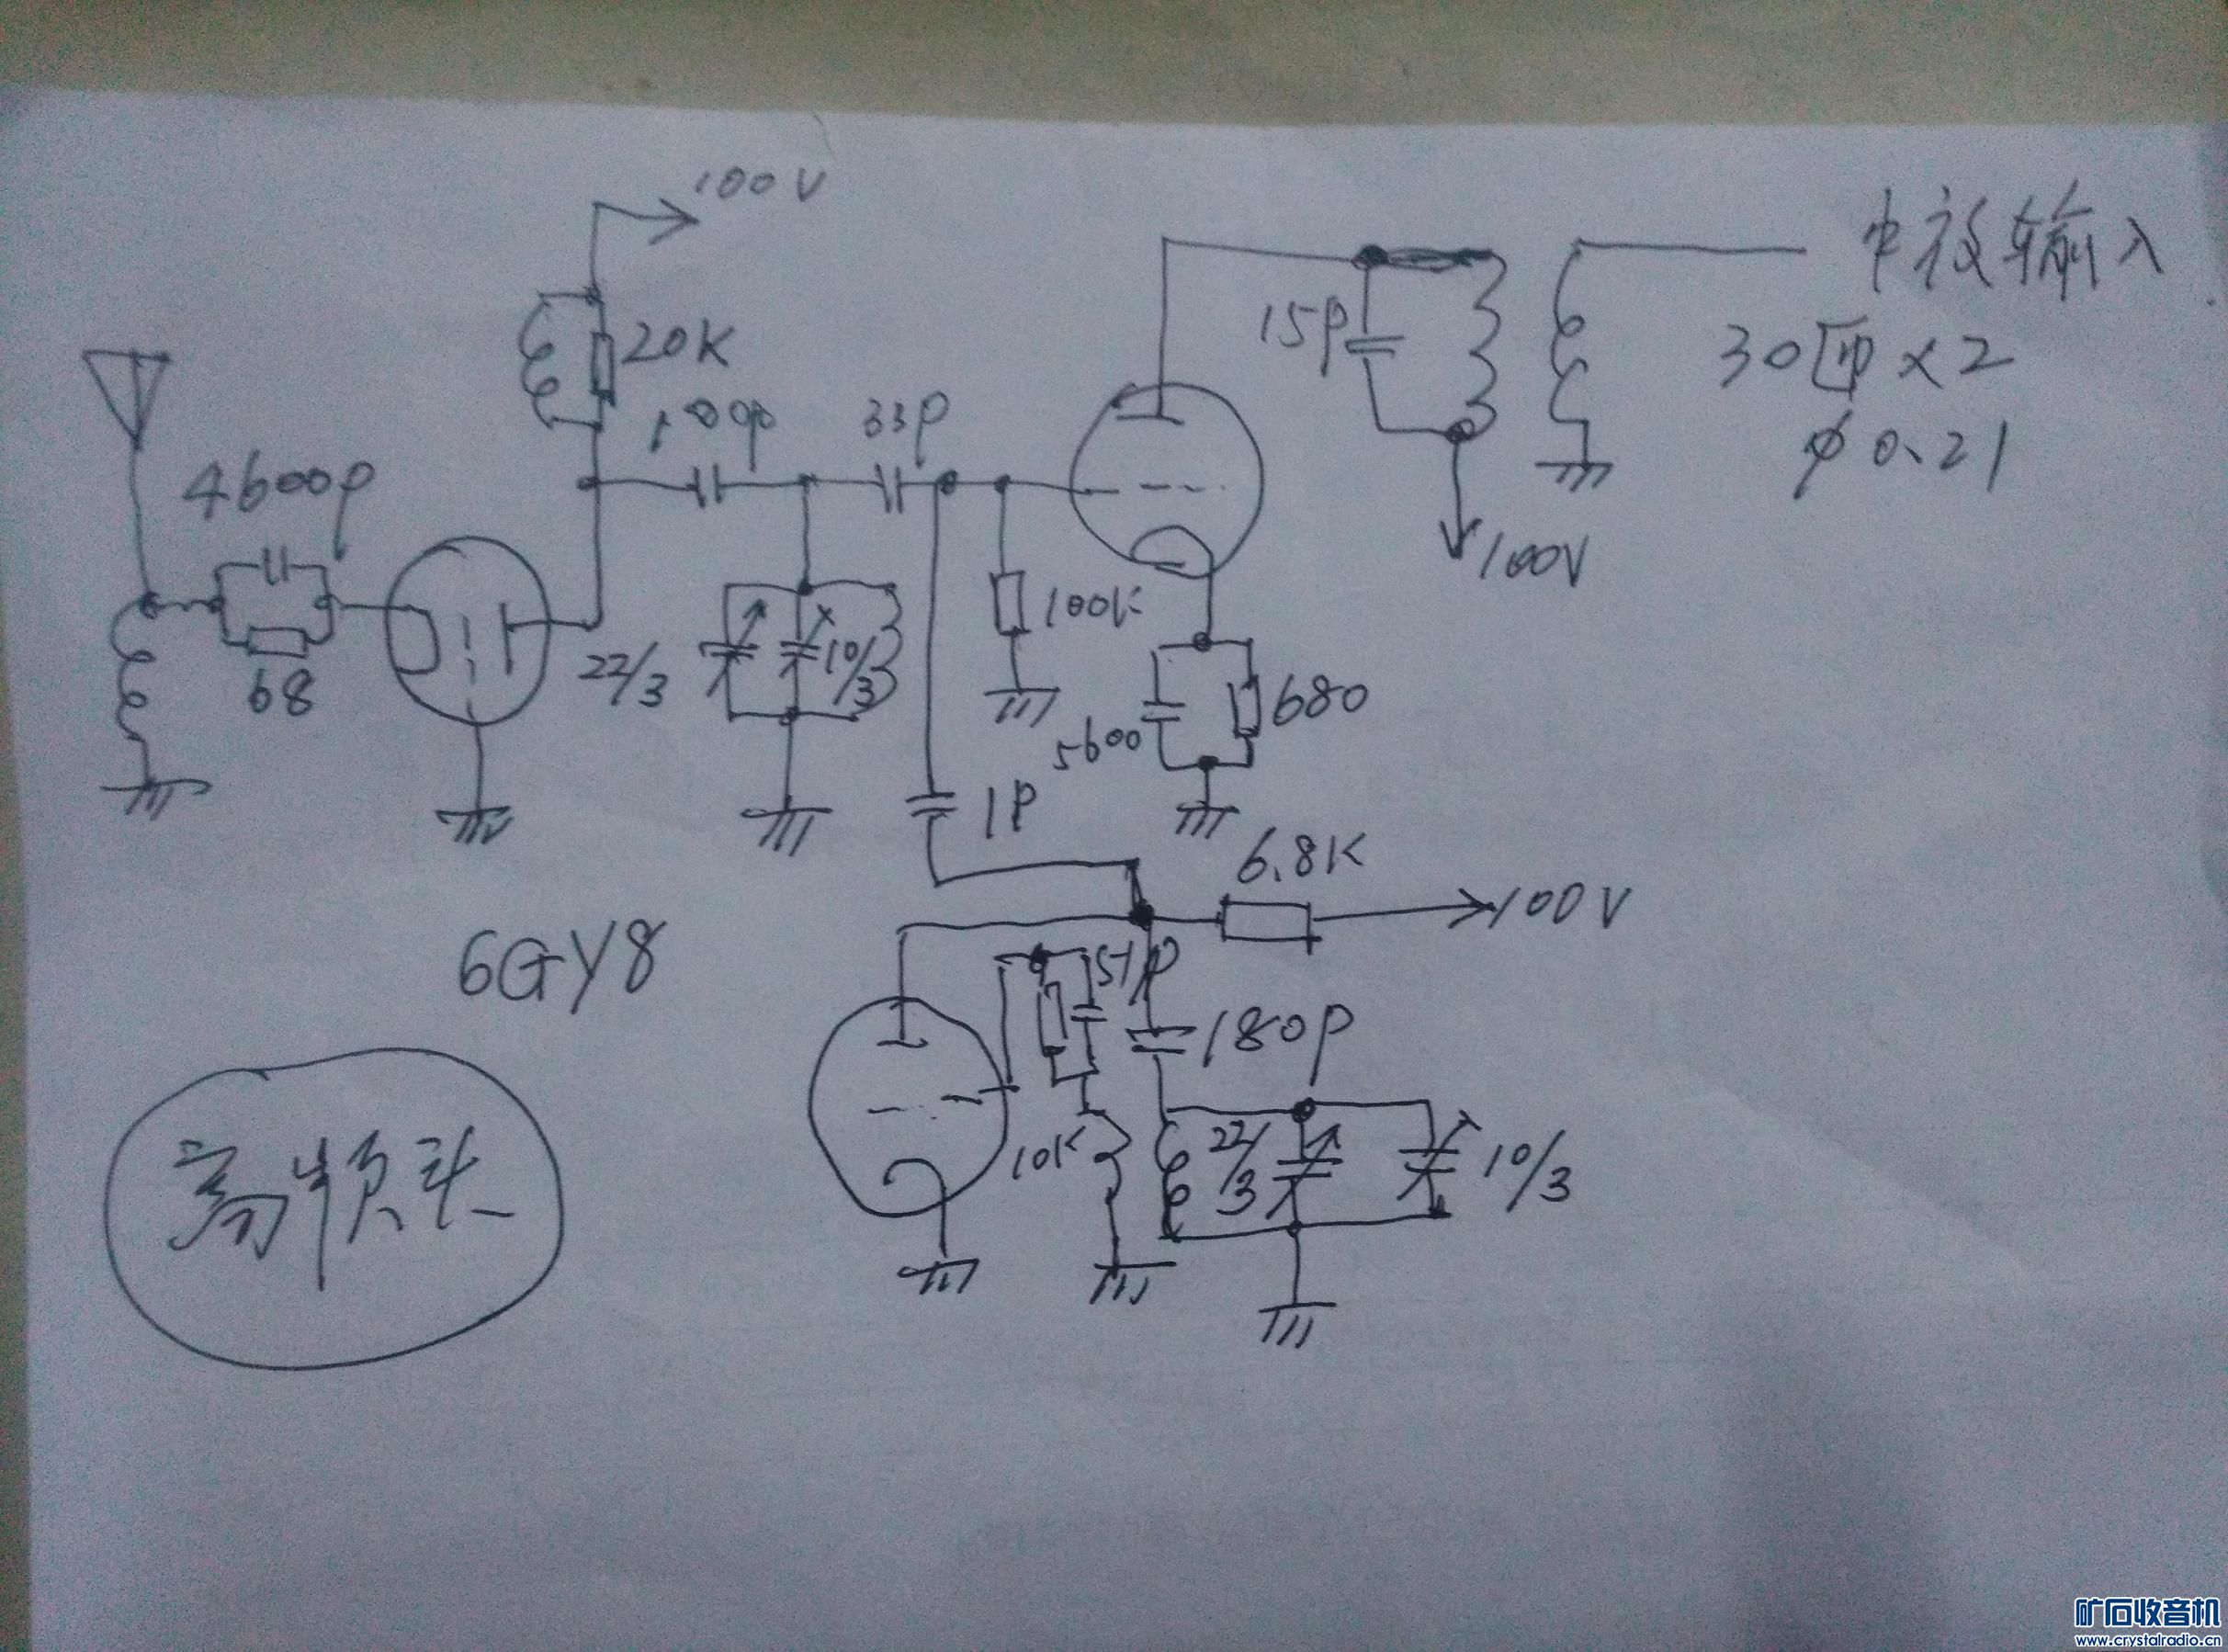 100V
20K
100p
33P
15P
中波输入
30匝×2
φ0.21
4600P
100V
68
22/3
10/3
100K
5600
680
1P
6.8K
100V
6GY8
51P
180P
10K
22/3
10/3
高频头
矿石收音机
www.crystalradio.cn